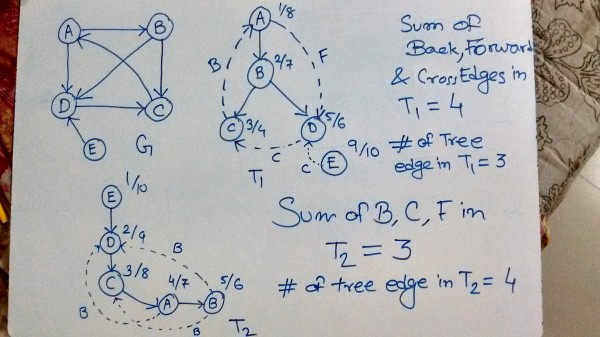 A
B
D
C
E
G
A 1/8
B
F
B 2/7
C 3/4
D 5/6
C
C
E 9/10
T1
Sum of
Back, Forward
& Cross Edges in
T1 = 4
# of Tree
edge in T1 = 3
1/10
E
D 2/9
B
C 3/8
4/7
5/6
A
B
B
B
T2
Sum of B, C, F in
T2 = 3
# of tree edge in T2 = 4